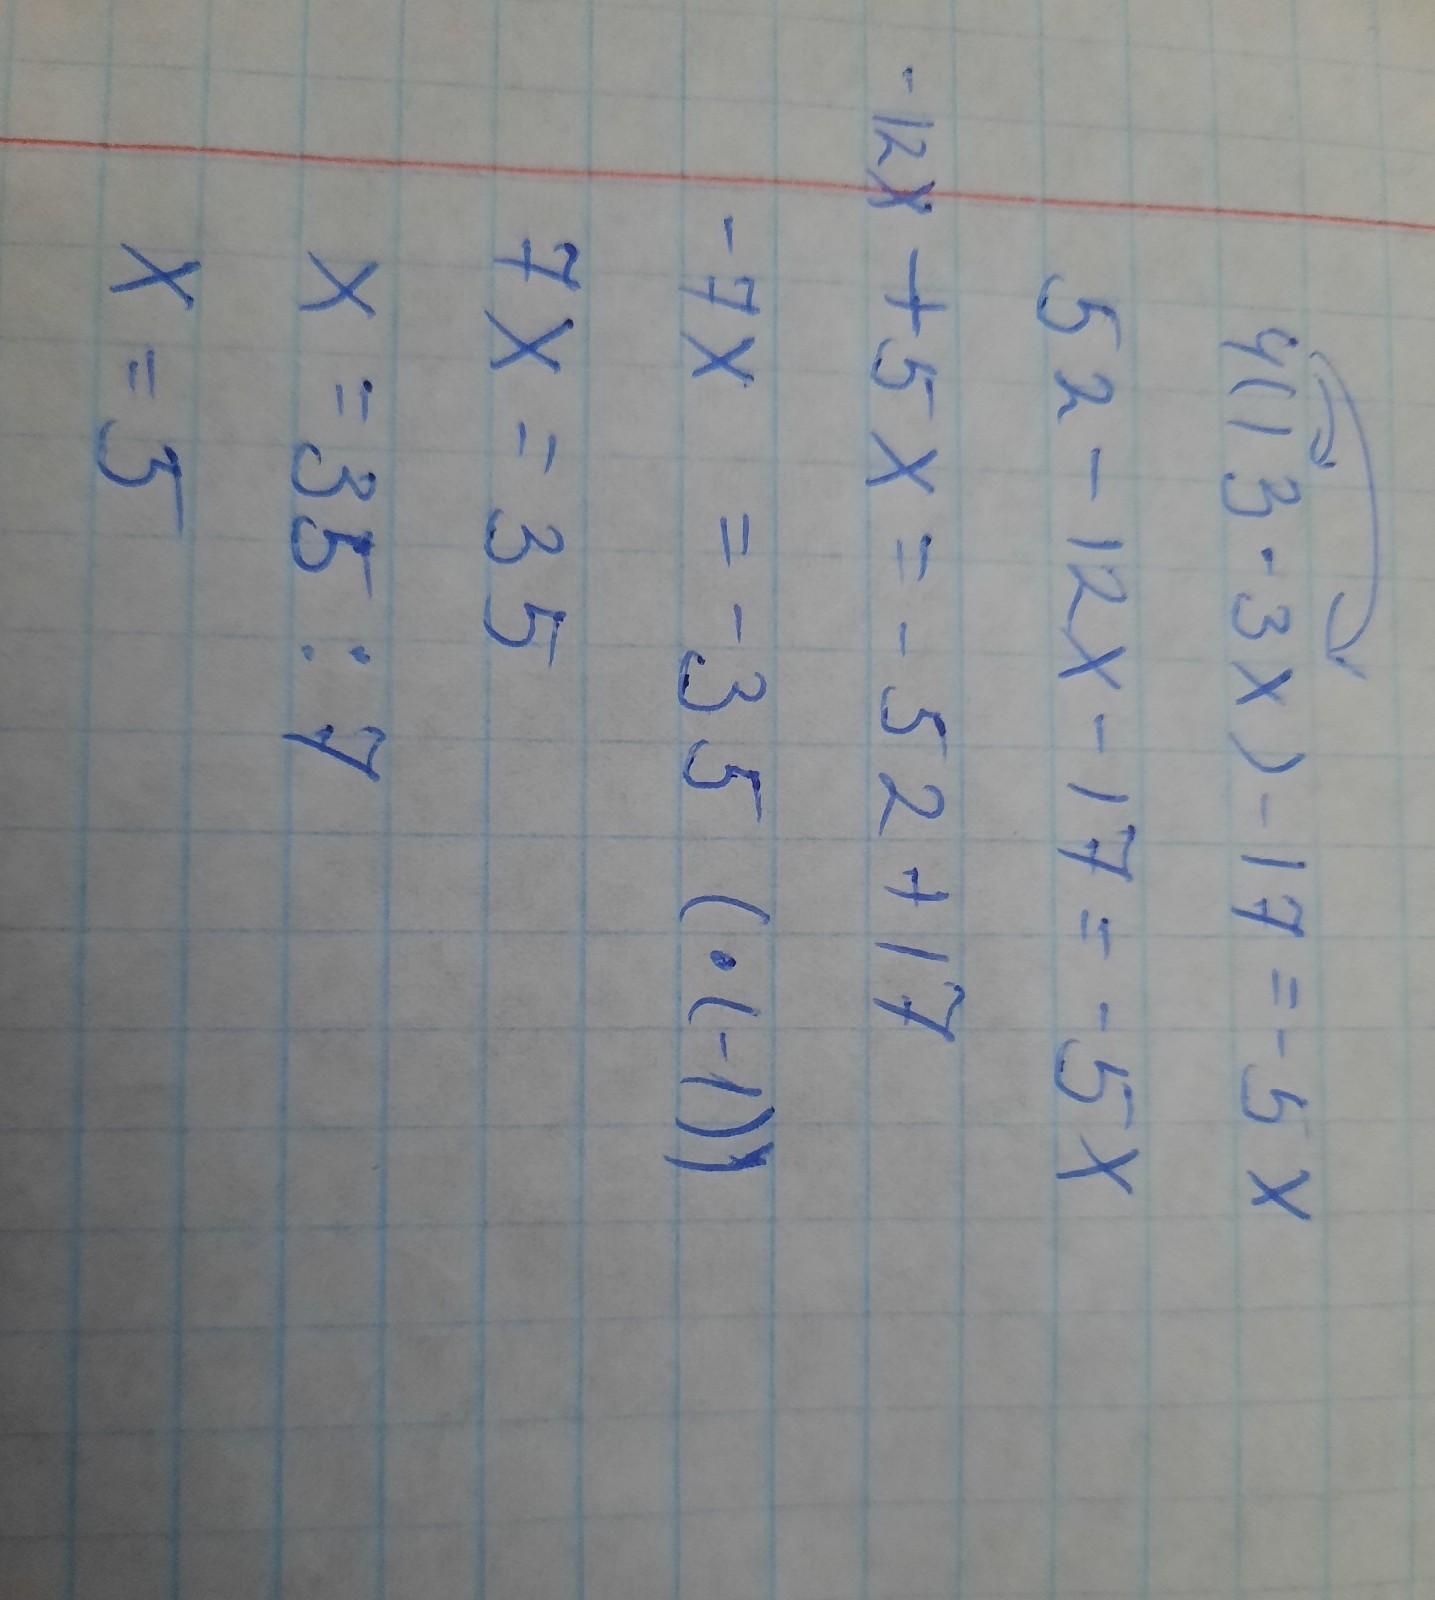 4(13-3x)-17=-5x
52-12x-17=-5x
-12x+5x=-52+17
-7x =-35 (·(-1))
7x=35
x=35:7
x=5